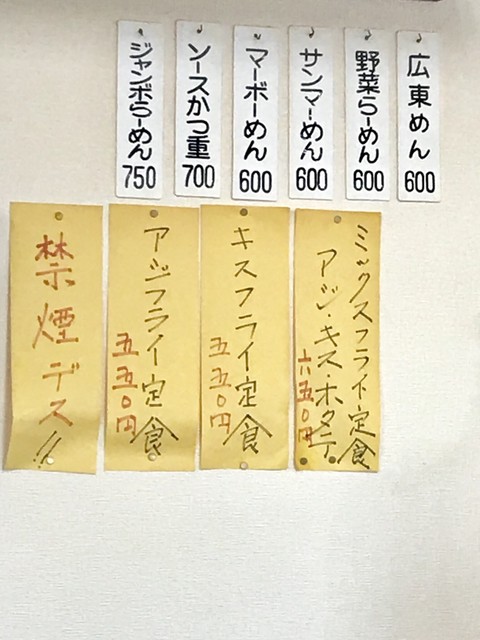 広東めん
600
野菜らーめん
600
サンマーめん
600
マーボーめん
600
ソースかつ重
700
ジャンボらーめん
750
ミックスフライ定食
アジ・キス・ホタテ
六五〇円
キスフライ定食
五五〇円
アジフライ定食
五五〇円
禁煙デス!!